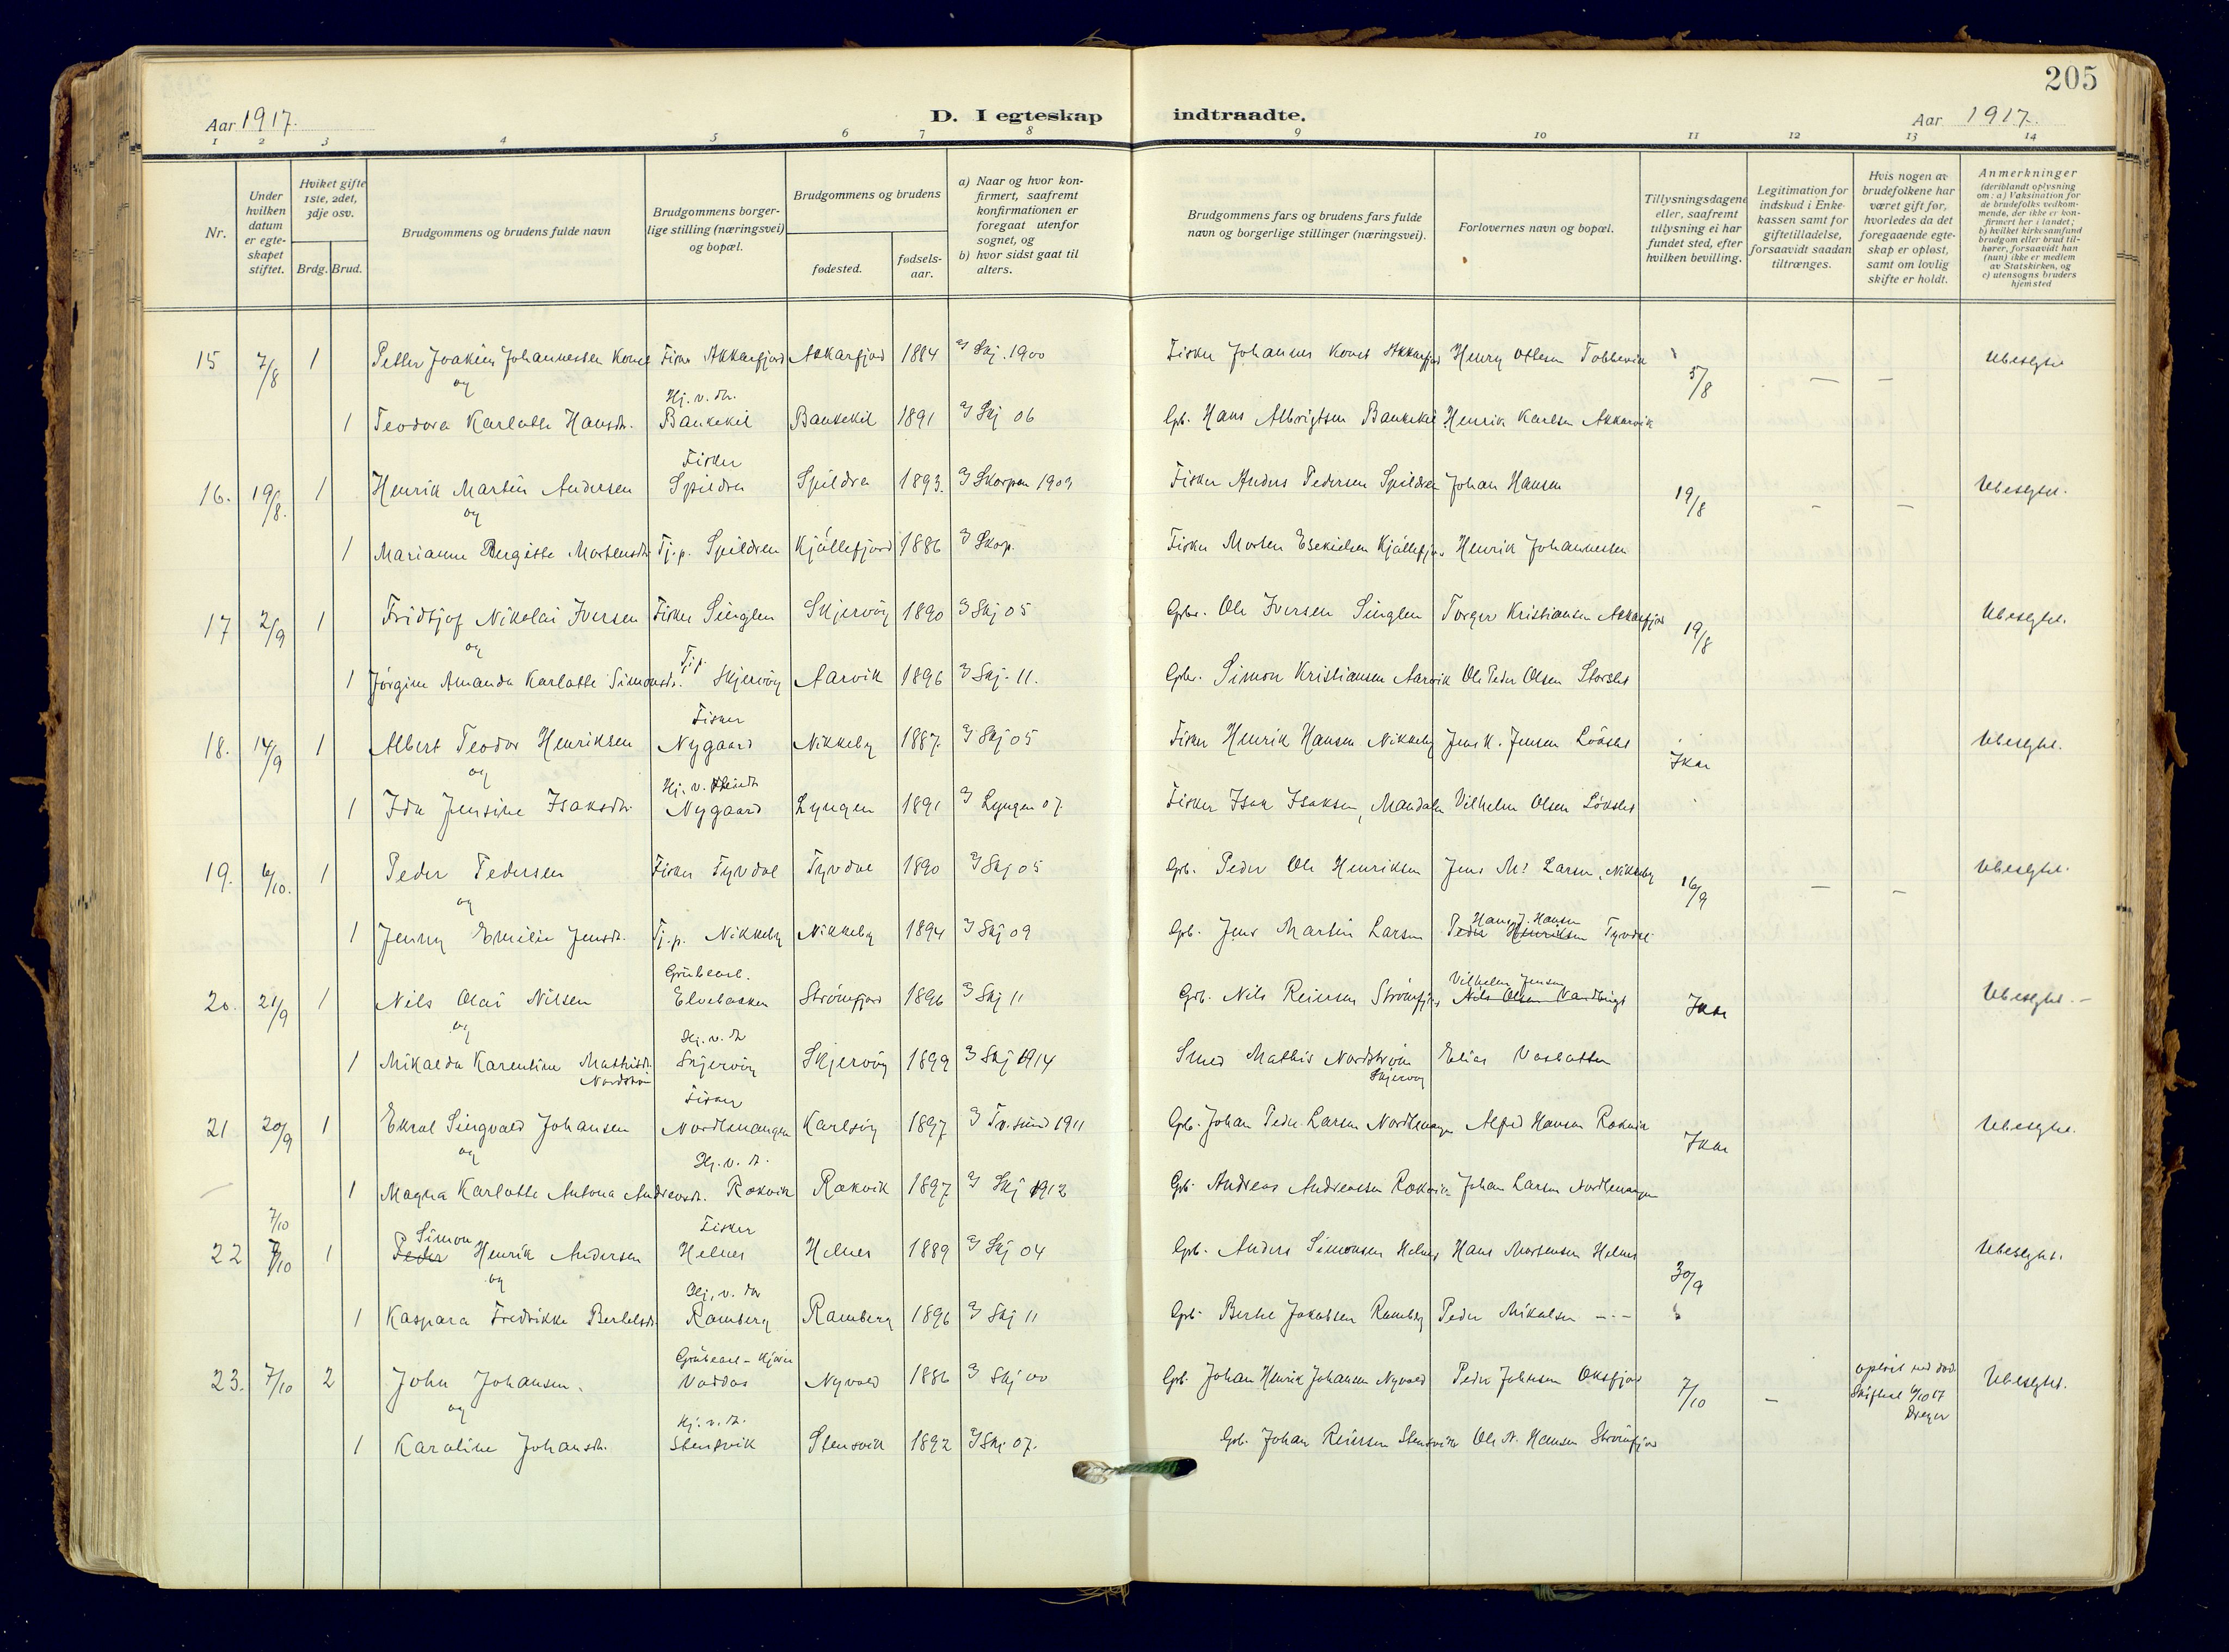 205
Aar 1917.
D. I egteskap indtraadte.
Aar 1917.
1 2 3 4 5 6 7 8 9 10 11 12 13 14
Nr.
Under hvilken datum er egteskapet stiftet.
Hvilket gifte 1ste, 2det, 3dje osv.
Brdg. Brud.
Brudgommens og brudens fulde navn
Brudgommens borgerlige stilling (næringsvei) og bopæl.
Brudgommens og brudens
fødested.
fødselsaar.
a) Naar og hvor konfirmert, saafremt konfirmationen er foregaat utenfor sognet, og
b) hvor sidst gaat til alters.
Brudgommens fars og brudens fars fulde navn og borgerlige stillinger (næringsvei).
Forlovernes navn og bopæl.
Tillysningsdagene eller, saafremt tillysning ei har fundet sted, efter hvilken bevilling.
Legitimation for indskud i Enkekassen samt for giftetilladelse, forsaavidt saadan tiltrænges.
Hvis nogen av brudefolkene har været gift før, hvorledes da det foregaaende egteskap er opløst, samt om lovlig skifte er holdt.
Anmerkninger
(deriblandt oplysning om: a) Vaksination for de brudefolks vedkommende, der ikke er konfirmert her i landet; b) hvilket kirkesamfund brudgom eller brud tilhører, forsaavidt han (hun) ikke er medlem av Statskirken, og c) utensogns bruders hjemsted
15 7/8 1 Petter Joakim Johannessen Fisker Akkarfjord Akkarfjord 1884 Skj. 1900 Fisker Johannes Akkarfjord Henry 5/8 — — Ubeslgtet
og
1 Teodora Karlotte Hansdr. Hj. v. dr. 1891 Skj 06 Gb. Hans Albrigtsen Henrik Karlsen Akkarvik
Fisker
16. 19/8. 1 Henrik Martin Andersen Spildra Spildra 1893. Skorpen 1909 Fisker Anders Pedersen Spildra Johan Hansen 19/8 - — Ubeslgtet.
og
1 Marianne Bergitte Mortensdr. Tj.p. Spildren Kjøllefjord 1886 Skorp. Fisker Morten Esekielsen Kjøllefjord Henrik Johannessen
17 2/9 1 Fridtjof Nikolai Iversen Fisker Singlen Skjervöy 1890 Skj 05 Gbr. Ole Iversen Singlen Torger Kristiansen Akkarfjord 19/8 Ubeslgtet.
og
1 Jörgine Amanda Karlotte Simonsdr. Tj.p. Skjervöy Aarvik 1896 Skj. 11. Gbr. Simon Kristiansen Aarvik Ole Peder Olsen Storslet
Fisker
18. 14/9 1 Albert Teodor Henriksen Nygaard Nikkeby 1887. Skj 05 Fisker Henrik Hansen Nikkeby Jens K. Jensen Lökslet Ikke Ubeslgtet.
og
1 Ida Jensine Isaksdr. Hj. v. Nygaard Lyngen 1891 Lyngen 07. Fisker Isak Isaksen, Mandalen Vilhelm Olsen Lökslet
19. 6/10. 1 Peder Pedersen Fisker Tyvdal Tyvdal 1890 Skj 05 Gb. Peder Ole Henriksen Jens M. Larsen, Nikkeby 16/9 — — Ubeslgtet.
og
1 Jenny Emilie Jensdr. Tj.p. Nikkeby Nikkeby 1894 Skj 09 Gb. Jens Martin Larsen Hans J. Hansen Peder Henriksen Tyvdal
Grubearb.
20. 21/9 1 Nils Olai Nilsen Elvebakken Strömfjord 1896 Skj 11 Gb. Nils Reiersen Strömfjord Vilhelm Jensen Nils Olsen Ikke Ubeslgtet. -
og
1 Mikalda Karentine Mathisdr. Nordström Hj. v. dr Skjervöy Skjervöy 1899 Skj 1914 Smed Mathis Nordström Skjervöy Elias
Fisker
21 20/9 1 Ekrol Singvald Johansen Nordlenangen Karlsöy 1897 Tr. sund 1911 Gb. Johan Peder Larsen Nordlenangen Alfred Hansen Rokvik Ikke Ubeslgtet.
og
1 Magna Karlotte Antona Andreasdr. Hj. v. dr. Rokvik Rokvik 1897 Skj 1912 Gb. Andreas Andreassen Rokvik Johan Larsen Nordlenangen
7/10
22 7/10 1 Simon Peder Henrik Andersen Fisker Helnes Helnes 1889 Skj 04 Gb. Anders Simonsen Helnes Hans Mortensen Helnes 30/9 Ubeslgtet.
og
1 Kaspara Fredrikke Bertelsdr. Hj. v. dr Ramberg Ramberg 1896 Skj 11 Gb. Bertel Jakobsen Ramberg Peder Mikalsen -·-
23. 7/10 2 John Johansen. Grubearb- Vaddas Nyvold 1886 Skj 00 Gb. Johan Henrik Johansen Nyvold Peder Johnsen Oksfjord 7/10 — opløst ved død. 6/10 17 Dreyer Ubeslgtet.
og
1 Karoline Johansdr. Hj. v. dr. Stensvik Stensvik 1892 Skj. 07. Gb. Johan Reiersen Stensvik Ole N. Hansen Strömfjord